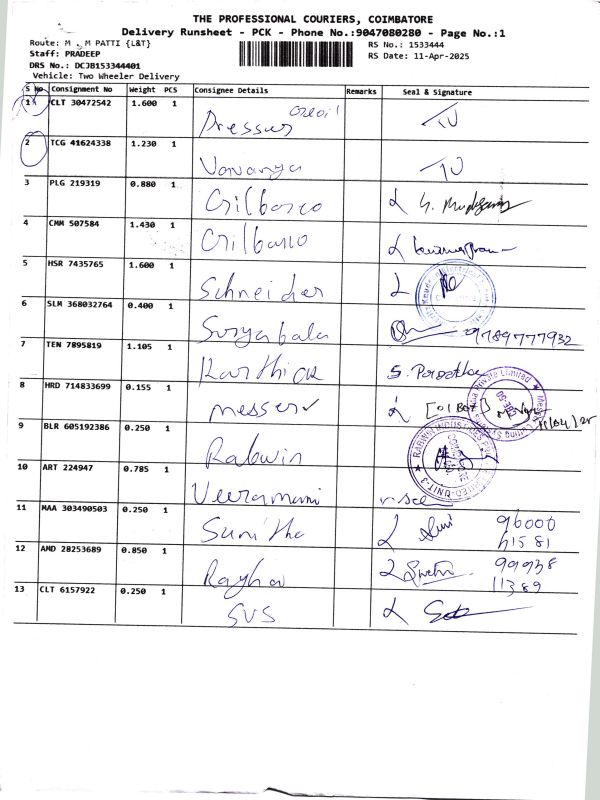 THE PROFESSIONAL COURIERS, COIMBATORE
Delivery Runsheet - PCK - Phone No.:9047080280 - Page No.:1
Route: M . M PATTI {L&T}
RS No.: 1533444
Staff: PRADEEP
RS Date: 11-Apr-2025
DRS No.: DCJB153344401
Vehicle: Two Wheeler Delivery
S No Consignment No Weight PCS Consignee Details Remarks Seal & Signature
1 CLT 30472542 1.600 1
2 TCG 41624338 1.230 1
3 PLG 219319 0.880 1 Gilbarco
4 CMM 507584 1.430 1 Gilbarco
5 HSR 7435765 1.600 1 Schneider
6 SLM 368032764 0.400 1 Suryabala 9789777932
7 TEN 7895819 1.105 1 Karthick
8 HRD 714833699 0.155 1 messer
9 BLR 605192386 0.250 1 Rabwin
10 ART 224947 0.785 1 Veeramani
11 MAA 303490503 0.250 1 Sunitha 96000
12 AMD 28253689 0.850 1 Raghav 99938
11389
13 CLT 6157922 0.250 1 SVS